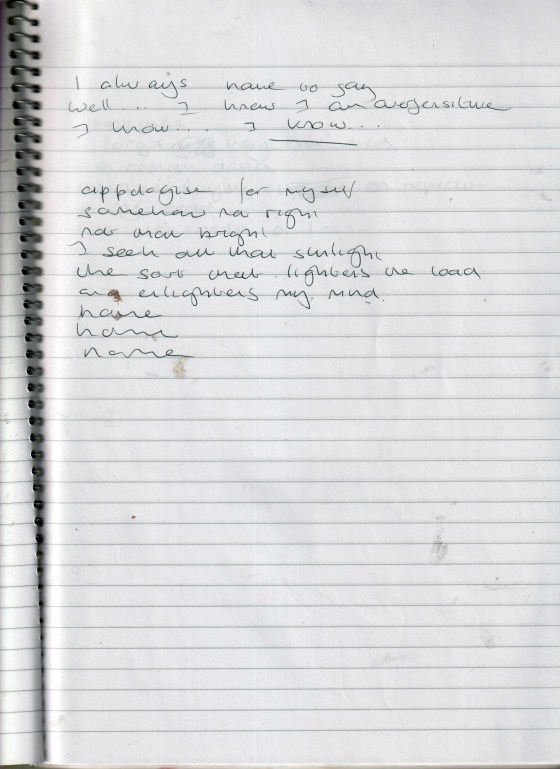 I always have to say
well... I know I am oversensitive
I know.... I know...
appologise for myself
somehow no right
not that bright
I seek out that sunlight
the sort that lightens the load
and enlightens my mind.
home
home
home